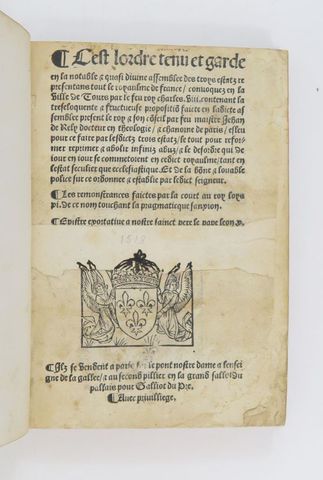 ¶ C'est lordre tenu et garde
en la notable & quasi divine assemblee des troys estatz re
presentans tout le royaulme de france / convoquez en la
ville de Tours par le feu roy charles. viii. contenant la
treseloquente & fructueuse propositiõ faicte en ladicte as
semblee present le roy & son cõseil par feu maistre Jehan
de Rely docteur en theologie / & chanoine de paris / esleu
pour ce faire par lesdictz troys estatz / le tout pour refor-
mer reprimer & abolir infinis abuz / & le desordre qui de
iour en iour se commetoient en cedict royaulme / tant en
lestat seculier que ecclesiastique. Et de la bõne & louable
police sur ce ordonnee & establie par ledict seigneur.
¶ Les remonstrances faictes par la court au roy loys
xi. de ce nom touchant la pragmaticque sanxion.
¶ Epistre exortative a nostre sainct pere le pape leon x.
1518
¶ Ilz se vendent a paris sus le pont nostre dame a lensei
gne de la gallee / & au second pillier en la grand salle du
pallais pour Galliot du Pre.
¶ Avec privilliege.